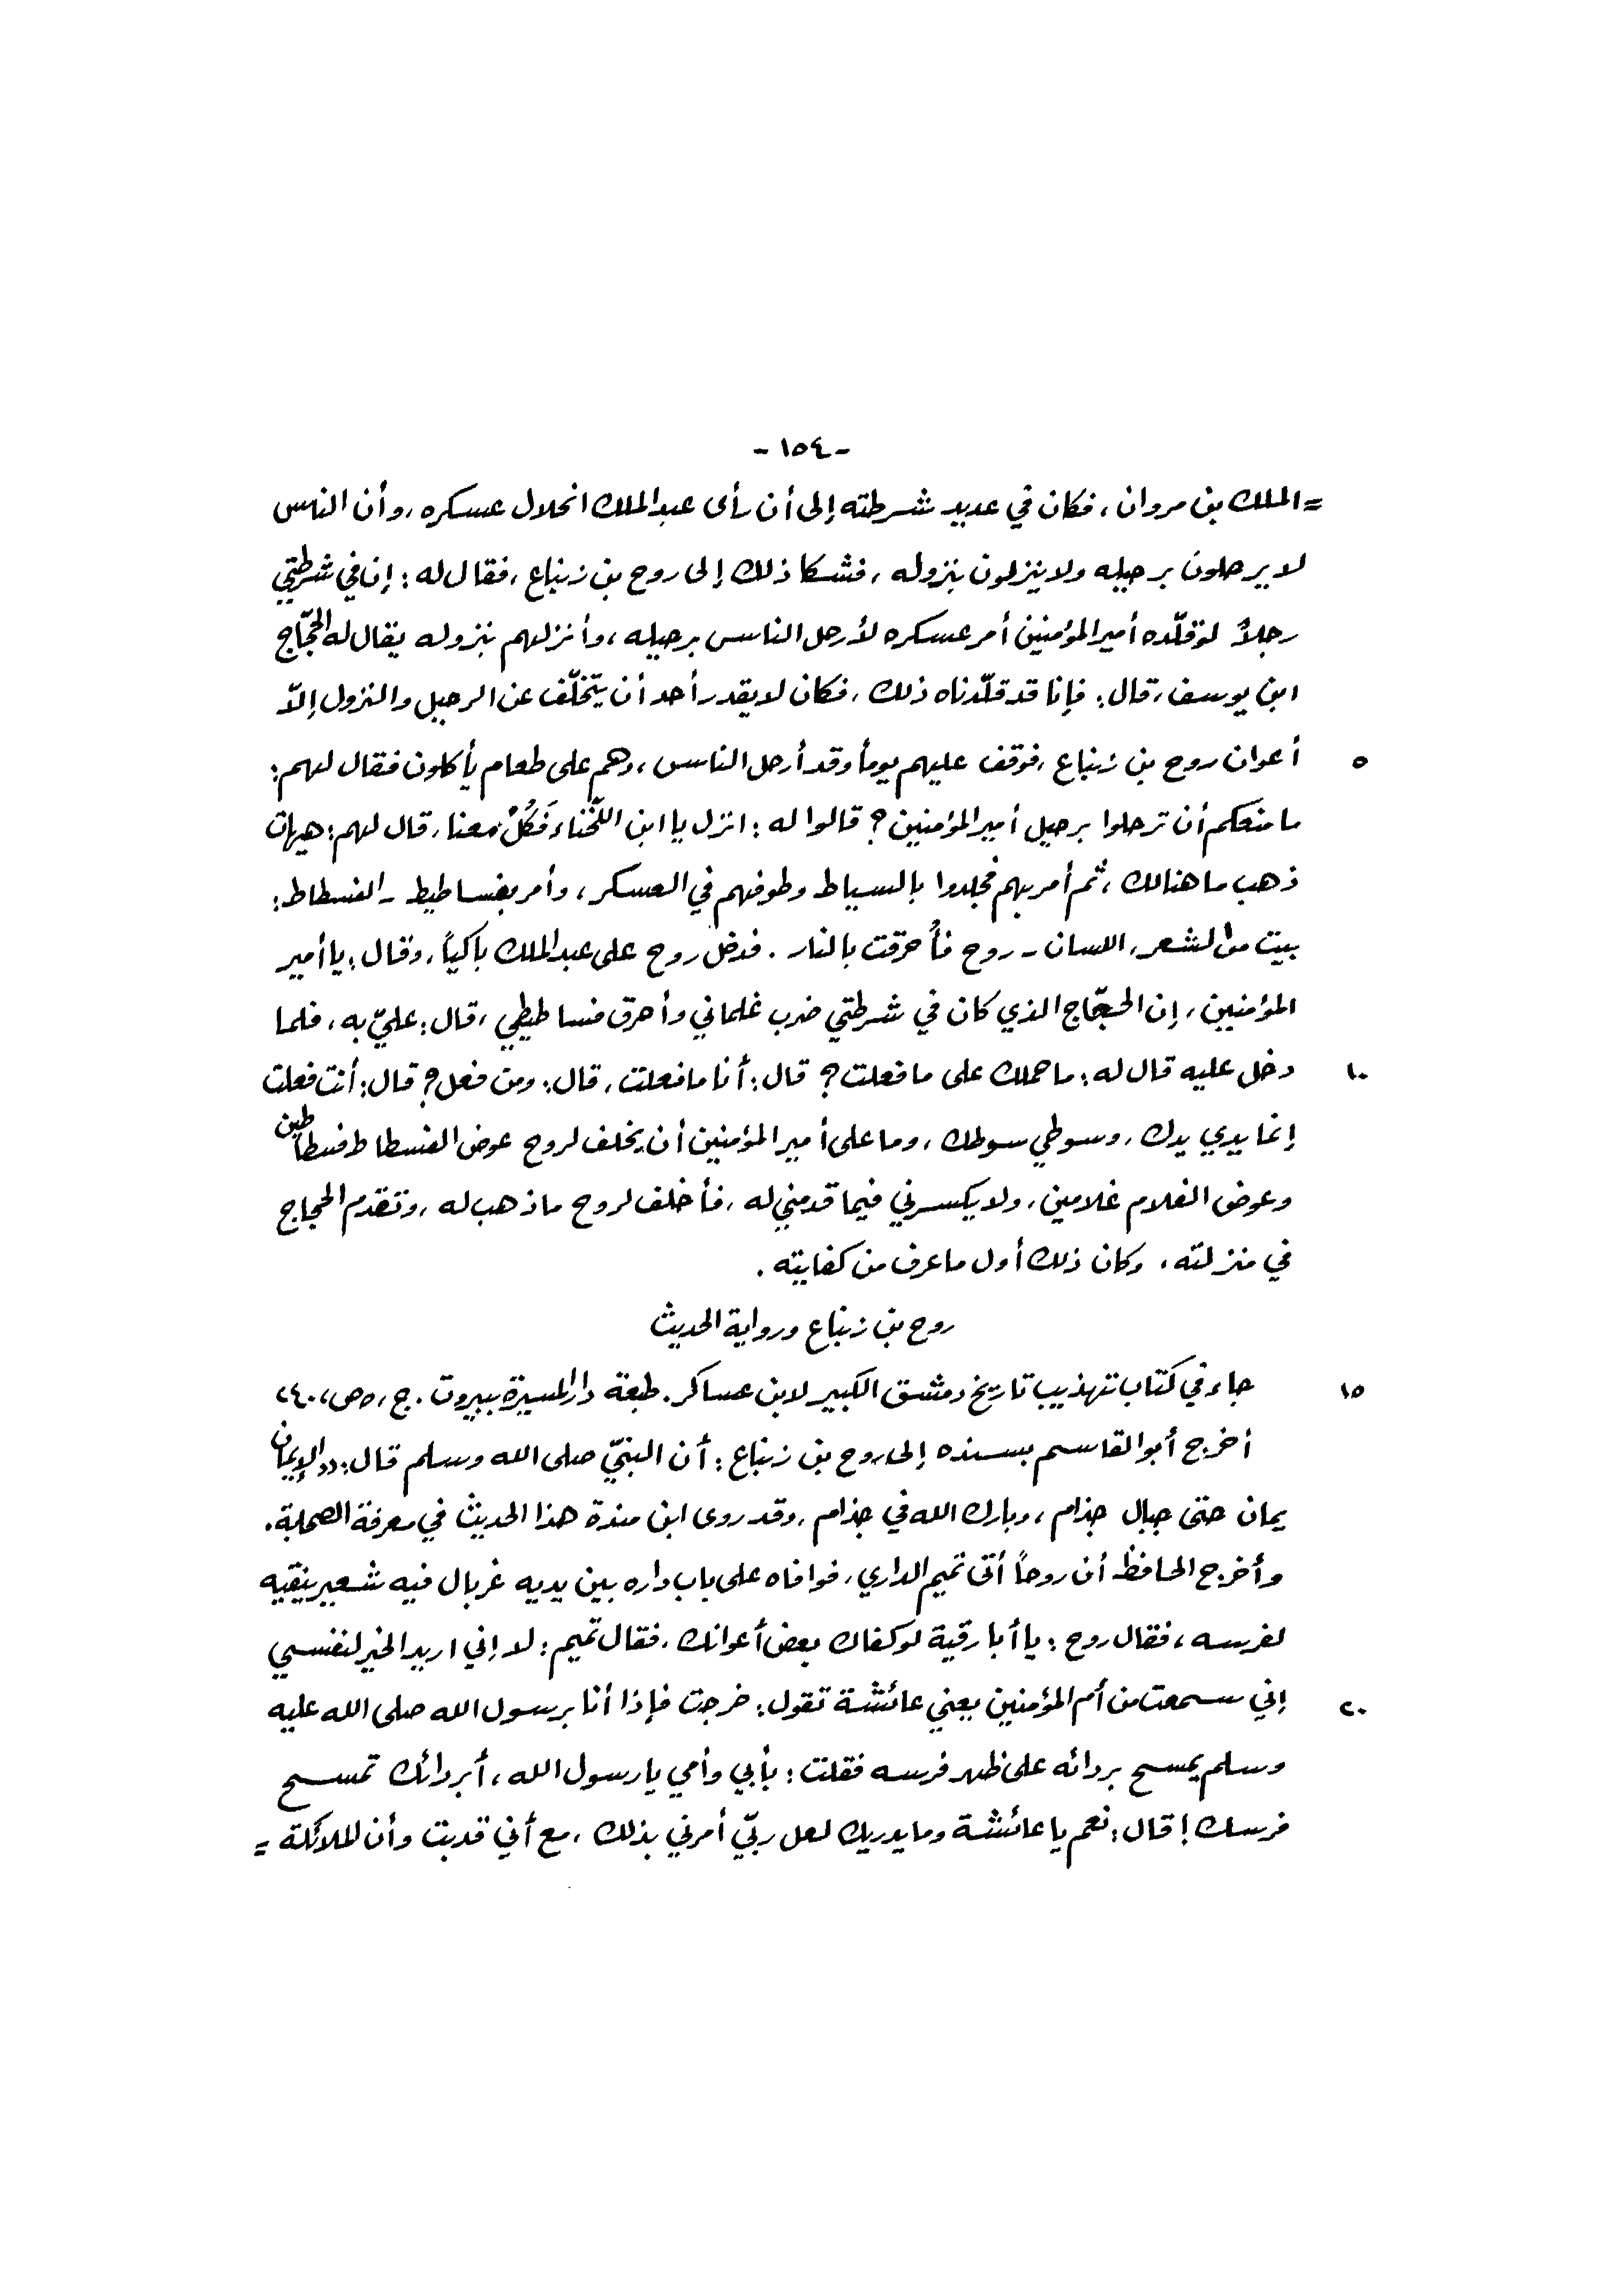 - ١٥٤ -
= الملك بن مروان، فكان في عديد شرطته إلى أن رأى عبد الملك انحلال عسكره، وأن الناس
لا يرحلون برحيله ولا ينزلون بنزوله، فشكا ذلك إلى روح بن زنباع، فقال له: إن في شرطتي
رجلاً لو قلّده أمير المؤمنين أمر عسكره لأرحل الناس برحيله، وأنزلهم بنزوله يقال له الحجّاج
ابن يوسف، قال: فإنا قد قلّدناه ذلك، فكان لا يقدر أحد أن يتخلّف عن الرحيل والنزول إلاّ
٥ أعوان روح بن زنباع، فوقف عليهم يوماً وقد أرحل الناس، وهم على طعام يأكلون فقال لهم:
ما منعكم أن ترحلوا برحيل أمير المؤمنين؟ قالوا له: انزل يا ابن اللّخناء فَكُلْ معنا، قال لهم: هيهات
ذهب ما هنالك، ثم أمر بهم فجلدوا بالسياط وطوفهم في العسكر، وأمر بفساطيط - الفسطاط:
بيت من الشعر، اللسان - روح فأُحرقت بالنار. فدخل روح على عبد الملك باكياً، وقال: يا أمير
المؤمنين، إن الحجّاج الذي كان في شرطتي ضرب غلماني وأحرق فساطيطي، قال: عليّ به، فلما
١٠ دخل عليه قال له: ما حملك على ما فعلت؟ قال: أنا ما فعلت، قال: ومن فعل؟ قال: أنت فعلت
إنما يدي يدك، وسوطي سوطك، وما على أمير المؤمنين أن يخلف لروح عوض الفسطاط فسطاطين
وعوض الغلام غلامين، ولا يكسرني فيما قدمني له، فأخلف لروح ما ذهب له، وتقدم الحجاج
في منزلته، وكان ذلك أول ما عرف من كفايته.
روح بن زنباع ورواية الحديث
١٥ جاء في كتاب تهذيب تاريخ دمشق الكبير لابن عساكر. طبعة دار المسيرة ببيروت. ج، ٥ ص، ٢٤٠،
أخرج أبو القاسم بسنده إلى روح بن زنباع: أن النبيّ صلى الله وسلم قال: «الإيمان
يمان حتى جبال جذام، وبارك الله في جذام، وقد روى ابن مندة هذا الحديث في معرفة الصحابة.
وأخرج الحافظ أن روحاً أتى تميم الداري، فوافاه على باب داره بين يديه غربال فيه شعير ينقيه
لفرسه، فقال روح: يا أبا رقية لو كفاك بعض أعوانك، فقال تميم: لا إني اريد الخير لنفسي
٢٠ إني سمعت من أم المؤمنين يعني عائشة تقول: خرجت فإذا أنا برسول الله صلى الله عليه
وسلم يمسح بردائه على ظهر فرسه فقلت: بأبي وأمي يا رسول الله، أبردائك تمسح
فرسك! قال: نعم يا عائشة وما يدريك لعل ربّي أمرني بذلك، مع أني قد بتّ وأن الملائكة =